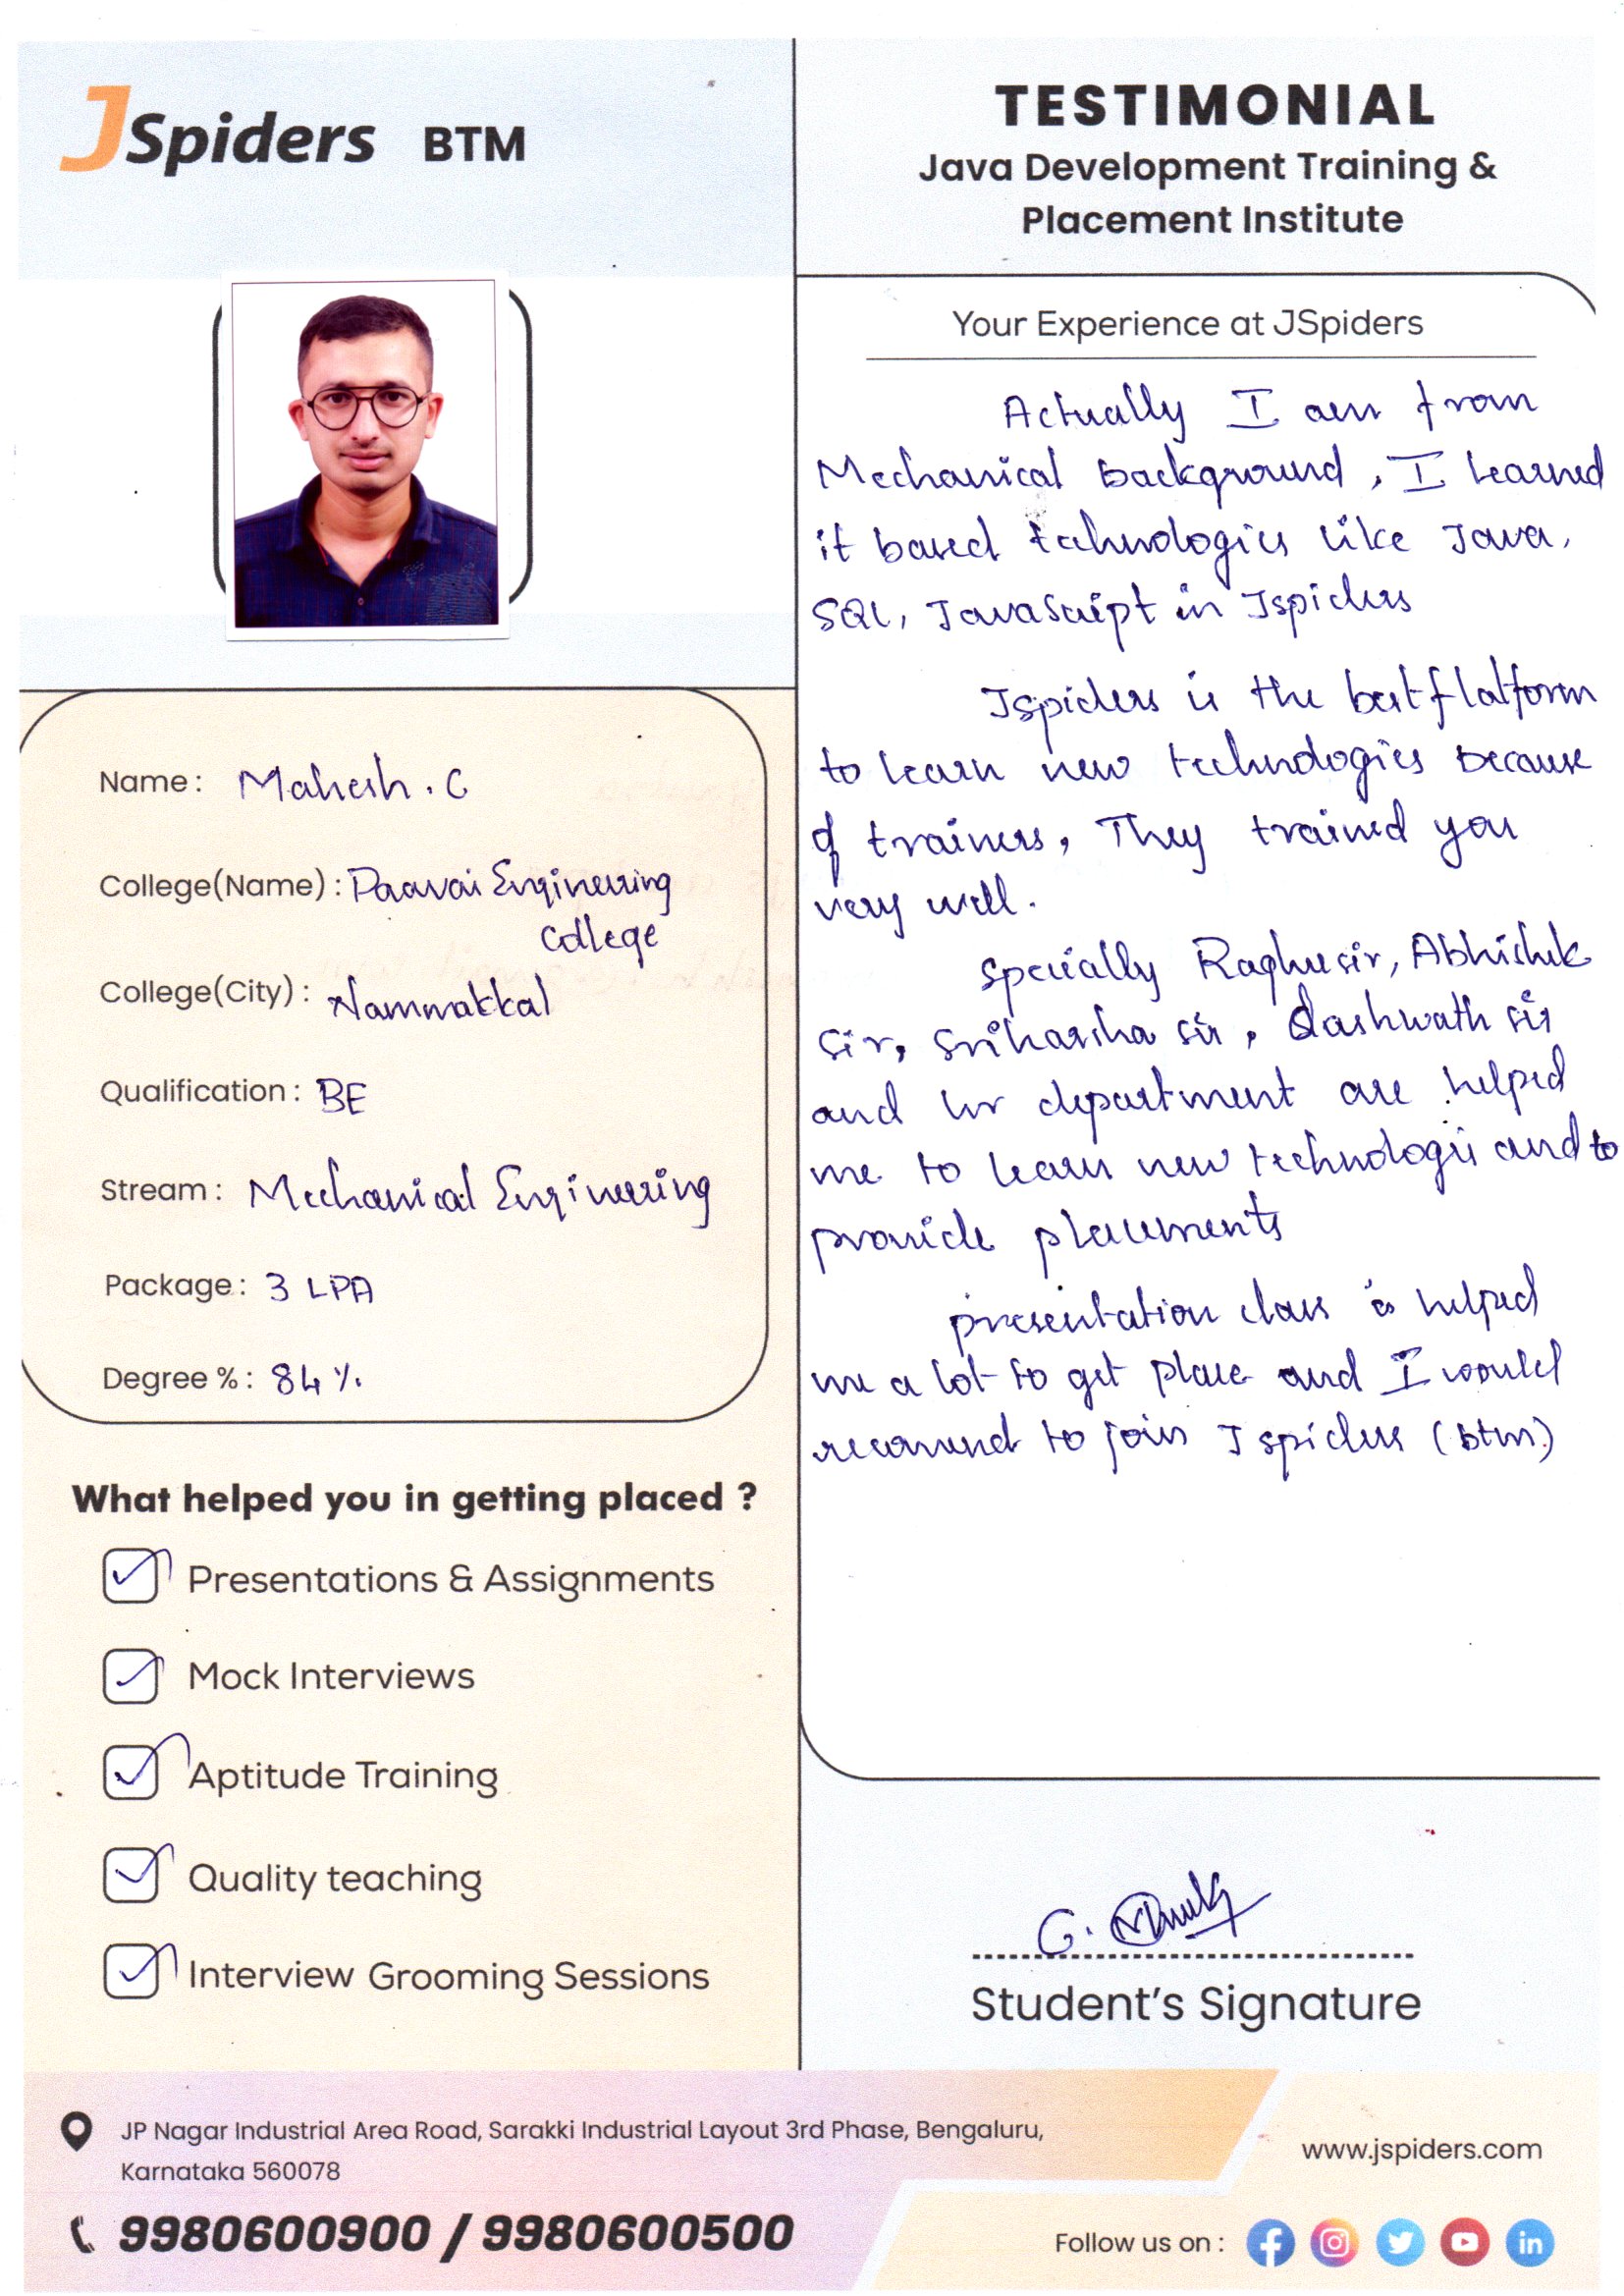 JSpiders BTM
Name : Mahesh . C
College(Name) : Paavai Engineering
College
College(City) : Nammakkal
Qualification : BE
Stream : Mechanical Engineering
Package : 3 LPA
Degree % : 84 %
What helped you in getting placed ?
Presentations & Assignments
Mock Interviews
Aptitude Training
Quality teaching
Interview Grooming Sessions
TESTIMONIAL
Java Development Training &
Placement Institute
Your Experience at JSpiders
Actually I am from
Mechanical background, I learned
it based technologies like Java,
SQL, JavaScript in Jspiders
Jspiders is the best flatform
to learn new technologies because
of trainers, They trained you
very well.
specially Raghu sir, Abhishek
sir, Sriharsha sir, Sashwath sir
and hr department are helped
me to learn new technologis and to
provide placements
presentation class is helped
me a lot to get place and I would
recomend to join Jspiders (btm)
Student's Signature
JP Nagar Industrial Area Road, Sarakki Industrial Layout 3rd Phase, Bengaluru,
Karnataka 560078
9980600900 / 9980600500
www.jspiders.com
Follow us on :